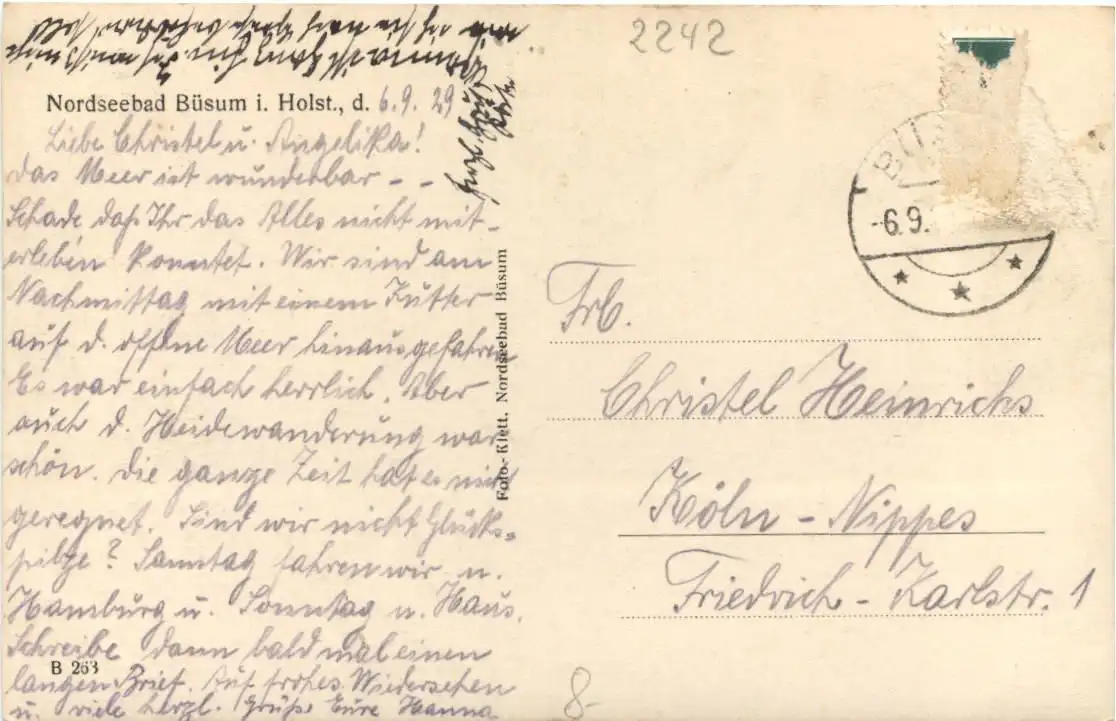 2242
Nordseebad Büsum i. Holst., d. 6.9.29
Liebe Christel u. Angelika!
Das Meer ist wunderbar - -
Schade daß Ihr das Alles nicht mit-
erleben konntet. Wir sind am
Nachmittag mit einem Kutter
auf d. offene Meer hinausgefahren
Es war einfach herrlich. Aber
auch d. Heidewanderung war
schön. Die ganze Zeit hat es nicht
geregnet. Sind wir nicht Glücks-
pilze? Samstag fahren wir n.
Hamburg u. Sonntag n. Haus.
Schreibe dann bald mal einen
langen Brief. Auf frohes Wiedersehen
u. viele herzl. Grüße Eure Hanna
B 263
Foto-Klett, Nordseebad Büsum
-6.9.
Frl.
Christel Heinrichs
Köln - Nippes
Friedrich - Karlstr. 1
8-